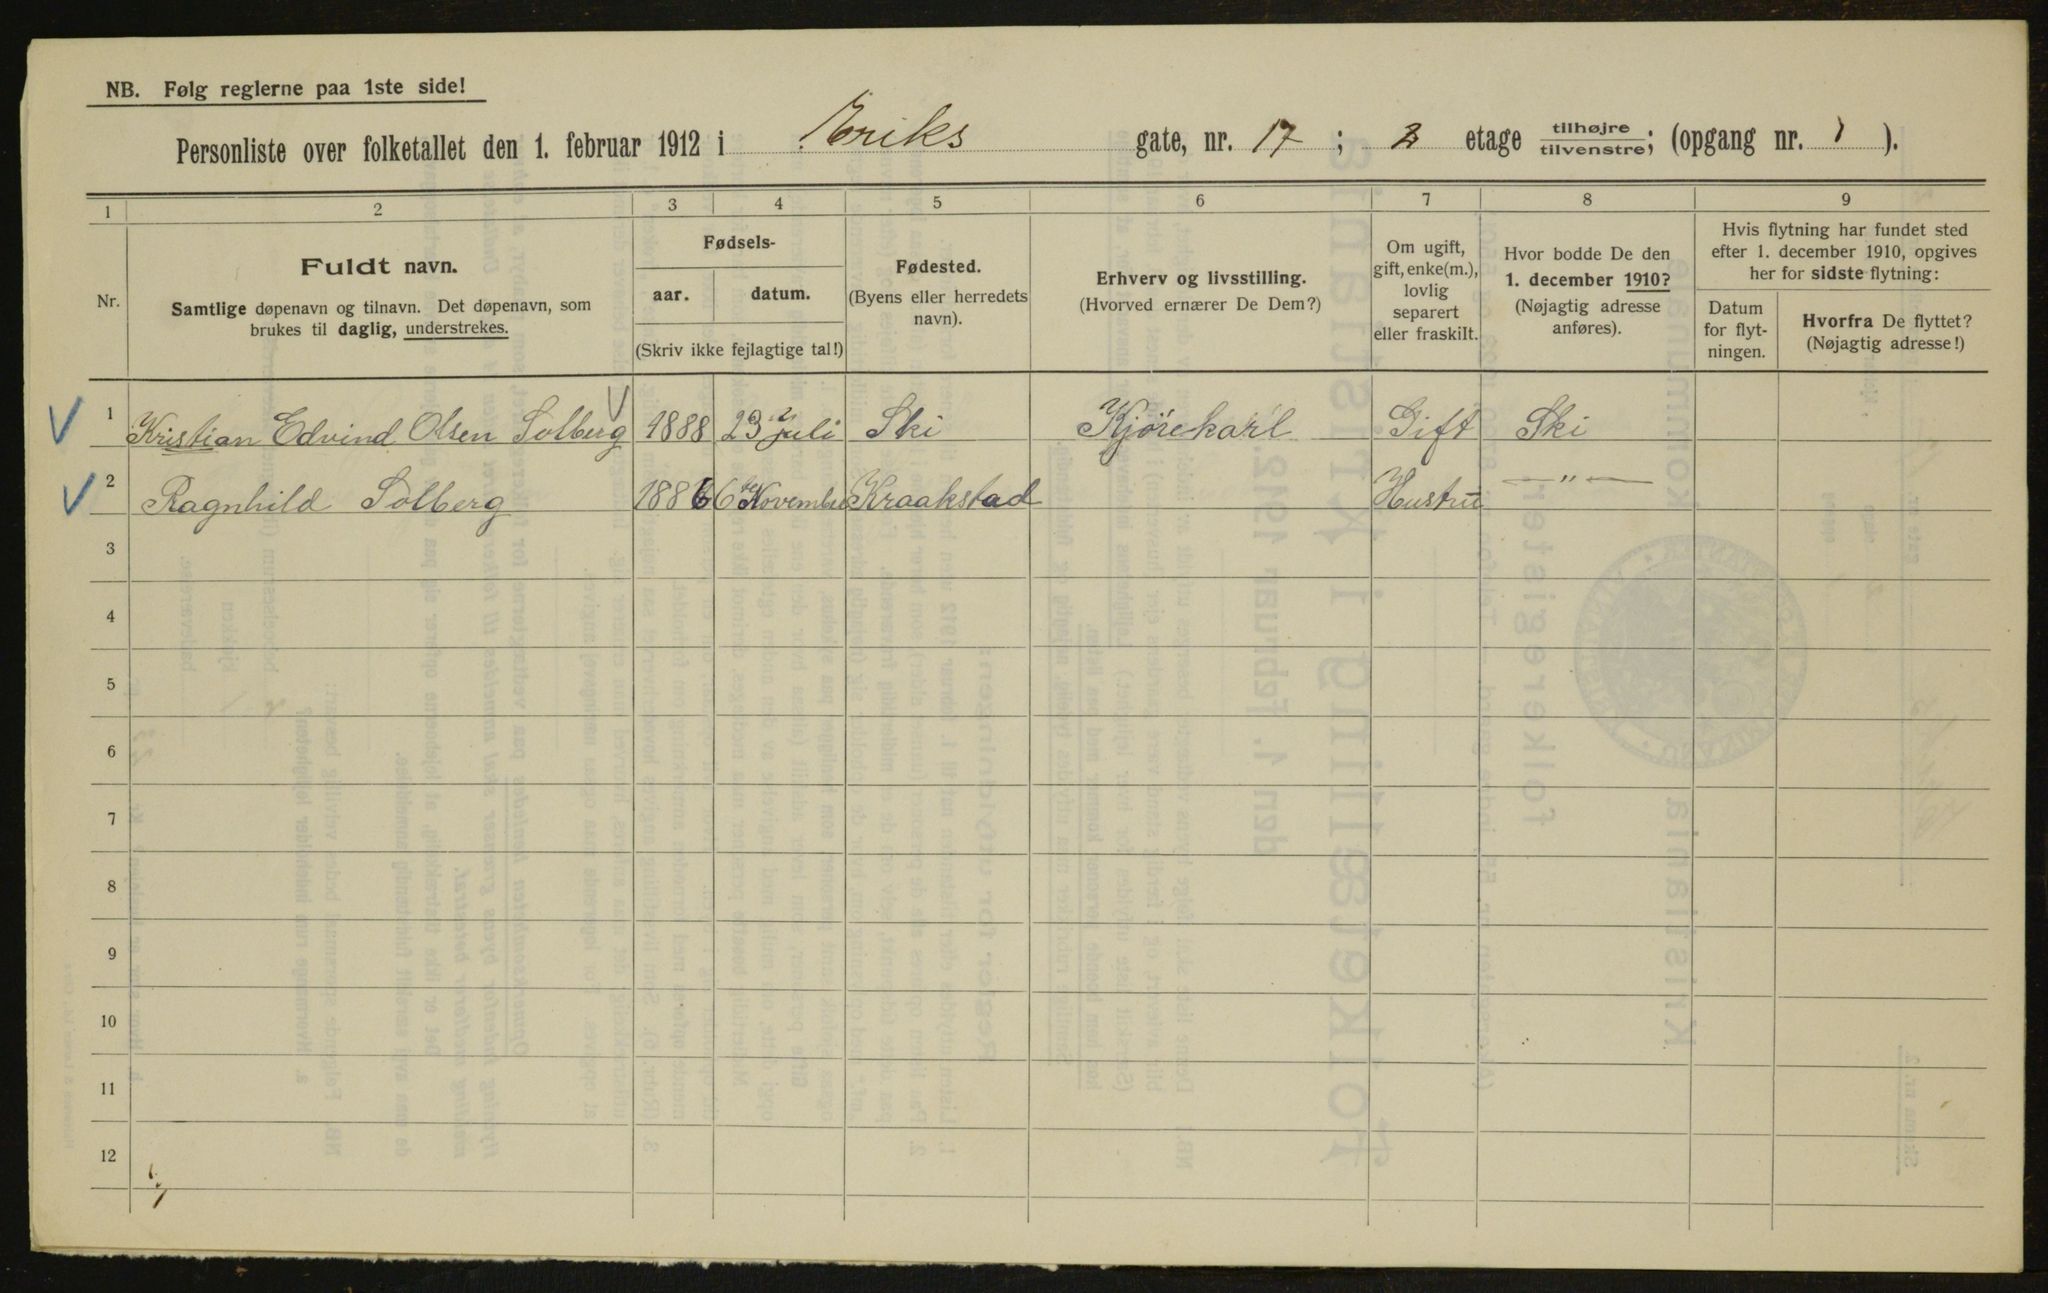 NB. Følg reglerne paa 1ste side!
Personliste over folketallet den 1. februar 1912 i Eriks gate, nr. 17 ; 2 etage tilhøjre tilvenstre; (opgang nr. 1 ).
1 2 3 4 5 6 7 8 9
Nr.
Fuldt navn.
Samtlige døpenavn og tilnavn. Det døpenavn, som
brukes til daglig, understrekes.
Fødsels-
aar. datum.
(Skriv ikke fejlagtige tal!)
Fødested.
(Byens eller herredets
navn).
Erhverv og livsstilling.
(Hvorved ernærer De Dem?)
Om ugift,
gift, enke(m.),
lovlig
separert
eller fraskilt.
Hvor bodde De den
1. december 1910?
(Nøjagtig adresse
anføres).
Hvis flytning har fundet sted
efter 1. december 1910, opgives
her for sidste flytning:
Datum
for flyt-
ningen.
Hvorfra De flyttet?
(Nøjagtig adresse!)
1 Kristian Edvind Olsen Solberg 1888 23 juli Ski Kjørekarl Gift Ski
2 Ragnhild Solberg 1886 6te November Kraakstad Hustru — " —
3
4
5
6
7
8
9
10
11
12